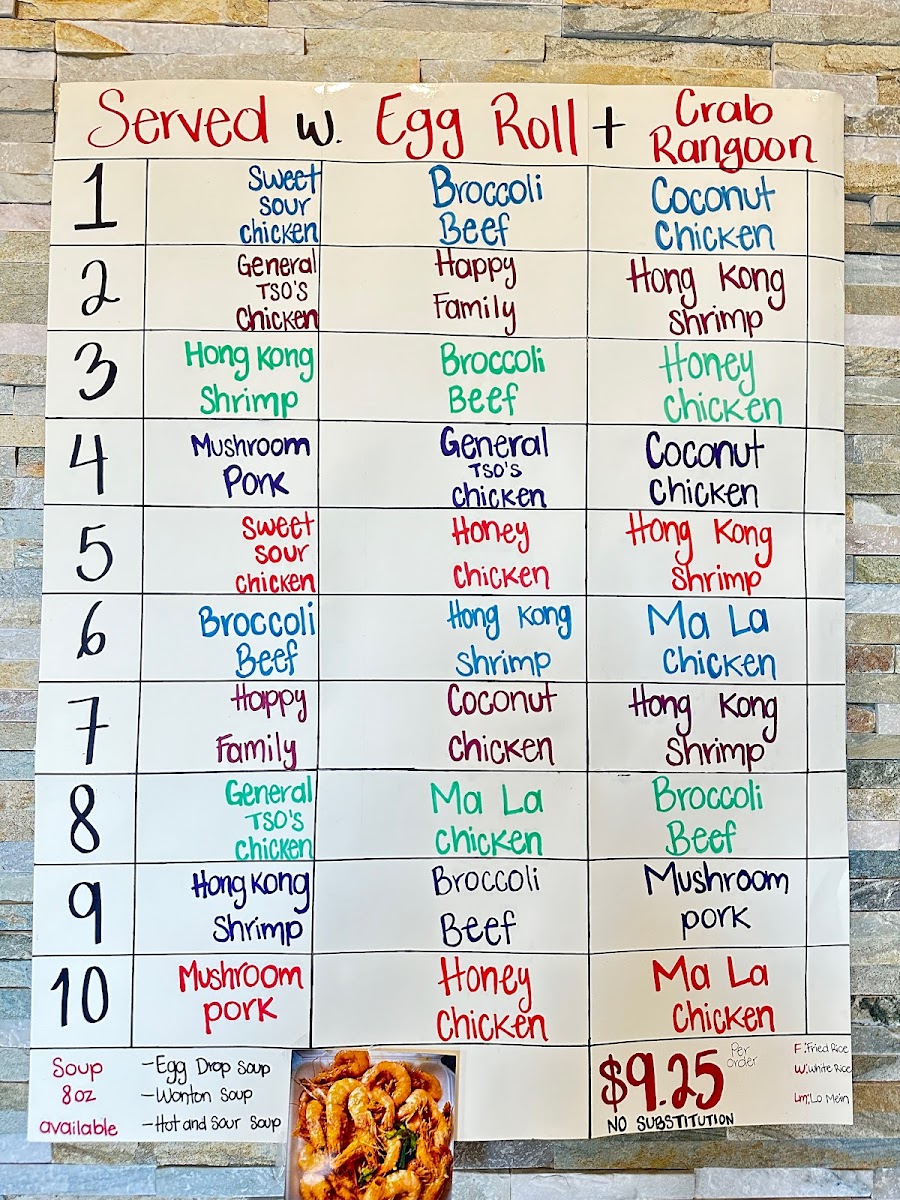 Served w. Egg Roll + Crab Rangoon
1
Sweet
sour
chicken
Broccoli
Beef
Coconut
Chicken
2
General
TSO'S
Chicken
Happy
Family
Hong Kong
Shrimp
3
Hong Kong
Shrimp
Broccoli
Beef
Honey
Chicken
4
Mushroom
Pork
General
TSO'S
Chicken
Coconut
Chicken
5
Sweet
sour
chicken
Honey
Chicken
Hong Kong
Shrimp
6
Broccoli
Beef
Hong Kong
shrimp
Ma La
Chicken
7
Happy
Family
Coconut
Chicken
Hong Kong
Shrimp
8
General
TSO'S
chicken
Ma La
Chicken
Broccoli
Beef
9
Hong Kong
Shrimp
Broccoli
Beef
Mushroom
pork
10
Mushroom
pork
Honey
Chicken
Ma La
Chicken
Soup
8oz
available
-Egg Drop Soup
-Wonton Soup
-Hot and Sour Soup
$9.25
Per
order
NO SUBSTITUTION
F: Fried Rice
W: White Rice
Lm: Lo Mein